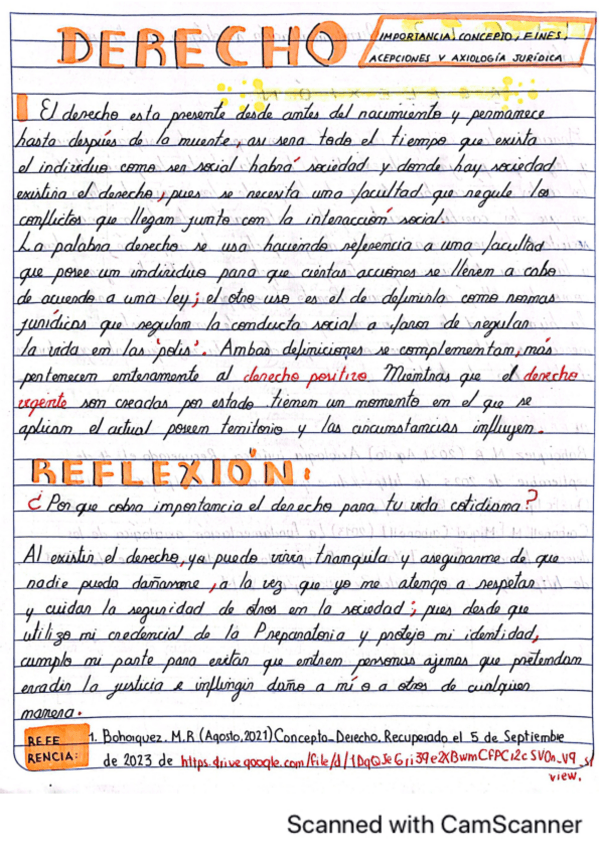 DERECHO
IMPORTANCIA, CONCEPTO, FINES,
ACEPCIONES Y AXIOLOGÍA JURÍDICA
El derecho esta presente desde antes del nacimiento y permanece
hasta después de la muerte, asi sera todo el tiempo que exista
el individuo como ser social habrá sociedad y donde hay sociedad
existira el derecho, pues se necesita una facultad que regule los
conflictos que llegan junto con la interacción social.
La palabra derecho se usa haciendo referencia a una facultad
que posee un individuo para que ciertas acciones se lleven a cabo
de acuerdo a una ley; el otro uso es el de definirla como normas
jurídicas que regulan la conducta social a favor de regular
la vida en las "polis". Ambas definiciones se complementan, más
pertenecen enteramente al derecho positivo. Mientras que el derecho
vigente son creadas por estado tienen un momento en el que se
aplican el actual poseen territorio y las circumstancias influyen.
REFLEXIÓN:
¿Por que cobra importancia el derecho para tu vida cotidiana?
Al existir el derecho, yo puedo vivir tranquila y asegurarme de que
nadie pueda dañarme, a la vez que yo me atengo a respetar
y cuidar la seguridad de otros en la sociedad; pues desde que
utilizo mi credencial de la Preparatoria y protejo mi identidad,
cumplo mi parte para evitar que entren personas ajenas que pretendan
erradir la justicia e inflingir daño a mí o a otros de cualquier
manera.
REFE
RENCIA:
1. Bohorquez. M.R (Agosto, 2021) Concepto_Derecho. Recuperado el 5 de Septiembre
de 2023 de
view.
Scanned with CamScanner